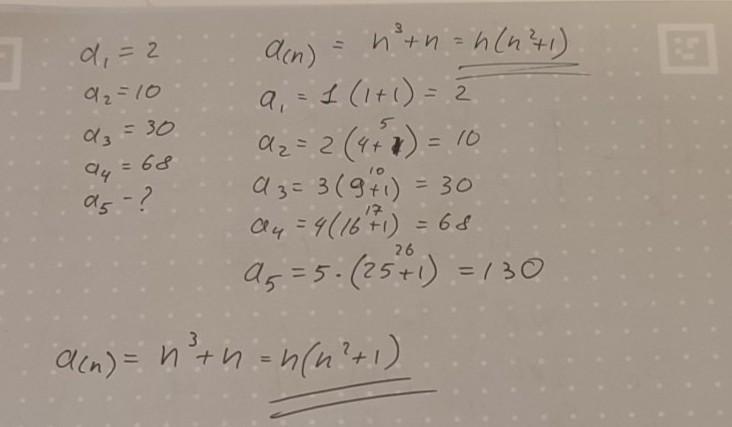 a₁ = 2
a₂ = 10
a₃ = 30
a₄ = 68
a₅ - ?
a(n) = n³+n = n(n²+1)
a₁ = 1 (1+1) = 2
5
a₂ = 2 (4+1) = 10
10
a₃ = 3(9+1) = 30
17
a₄ = 4(16+1) = 68
26
a₅ = 5·(25+1) = 130
a(n) = n³+n = n(n²+1)